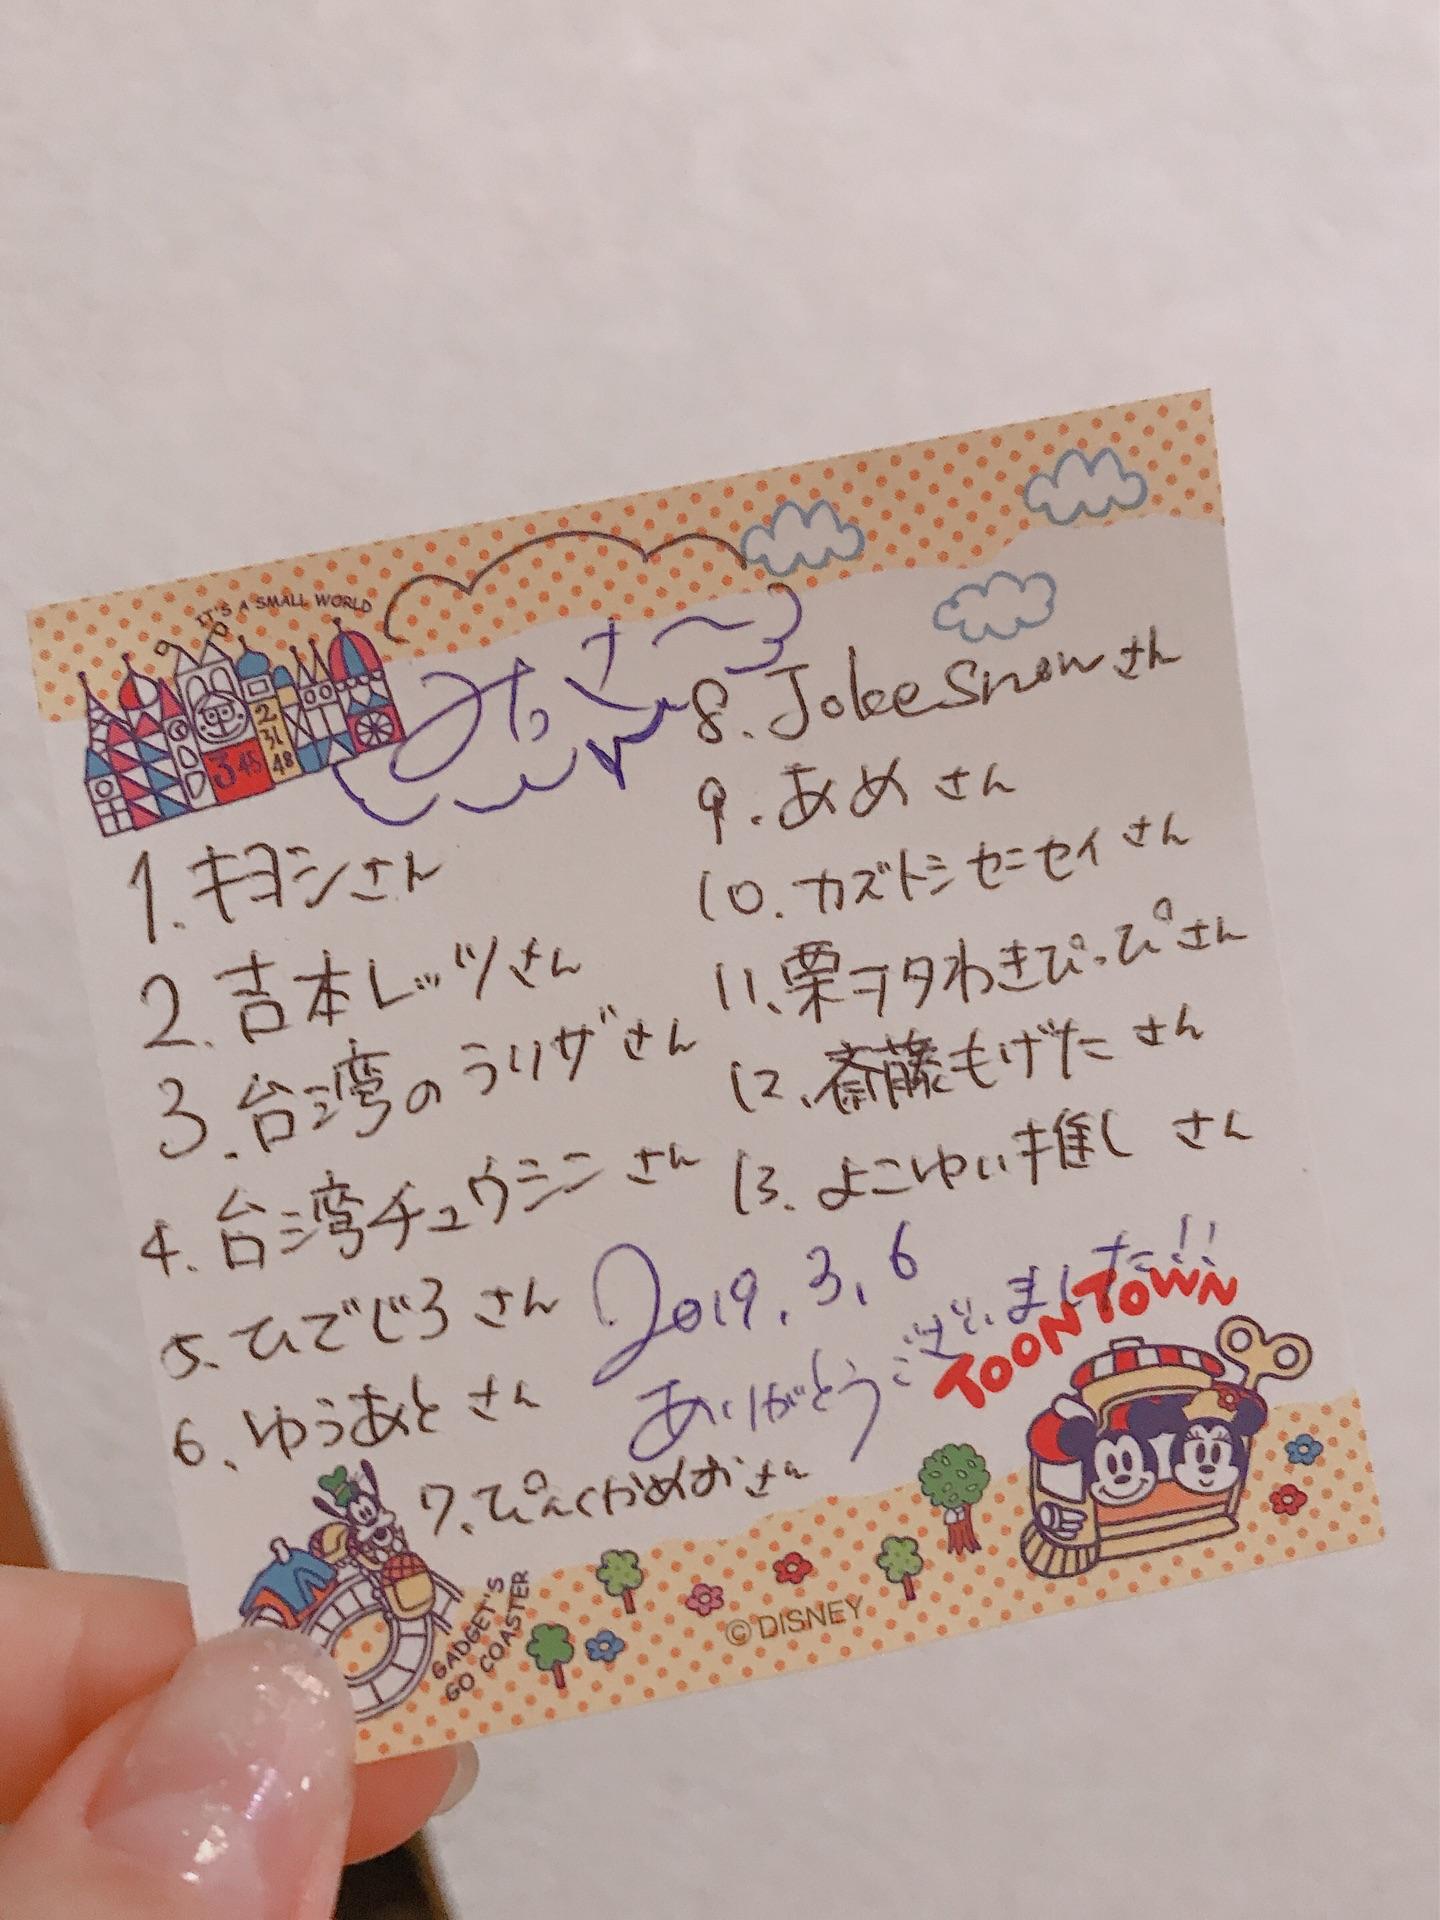 IT'S A SMALL WORLD
3 45
2
31
48
1. キヨシさん
2. 吉本レッツさん
3. 台湾のうリザさん
4. 台湾チュウシンさん
5. ひでじろさん
6. ゆうあとさん
7. ぴんくかめおさん
8. Joke Snowさん
9. あめさん
10. カズトシセニセイさん
11. 栗ヲタわきぴっぴさん
12. 斎藤もげたさん
13. よこゆい推しさん
2019.3.6
ありがとうございました!!
TOONTOWN
GADGET'S
GO COASTER
©DISNEY